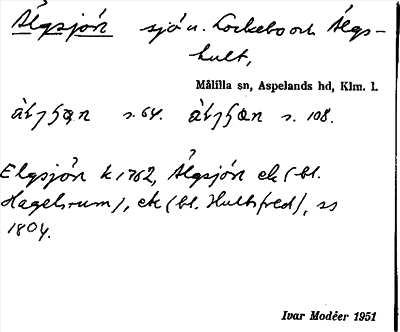 Älgsjön sjö u. Lockebo och Älgs-
hult,
Målilla sn, Aspelands hd, Klm. l.
s. 64. s. 108.
Elgsjön k 1762, Älgsjön ek (bl.
Hagelsrum), ek (bl. Hultsfred), ss
1804.
Ivar Modéer 1951